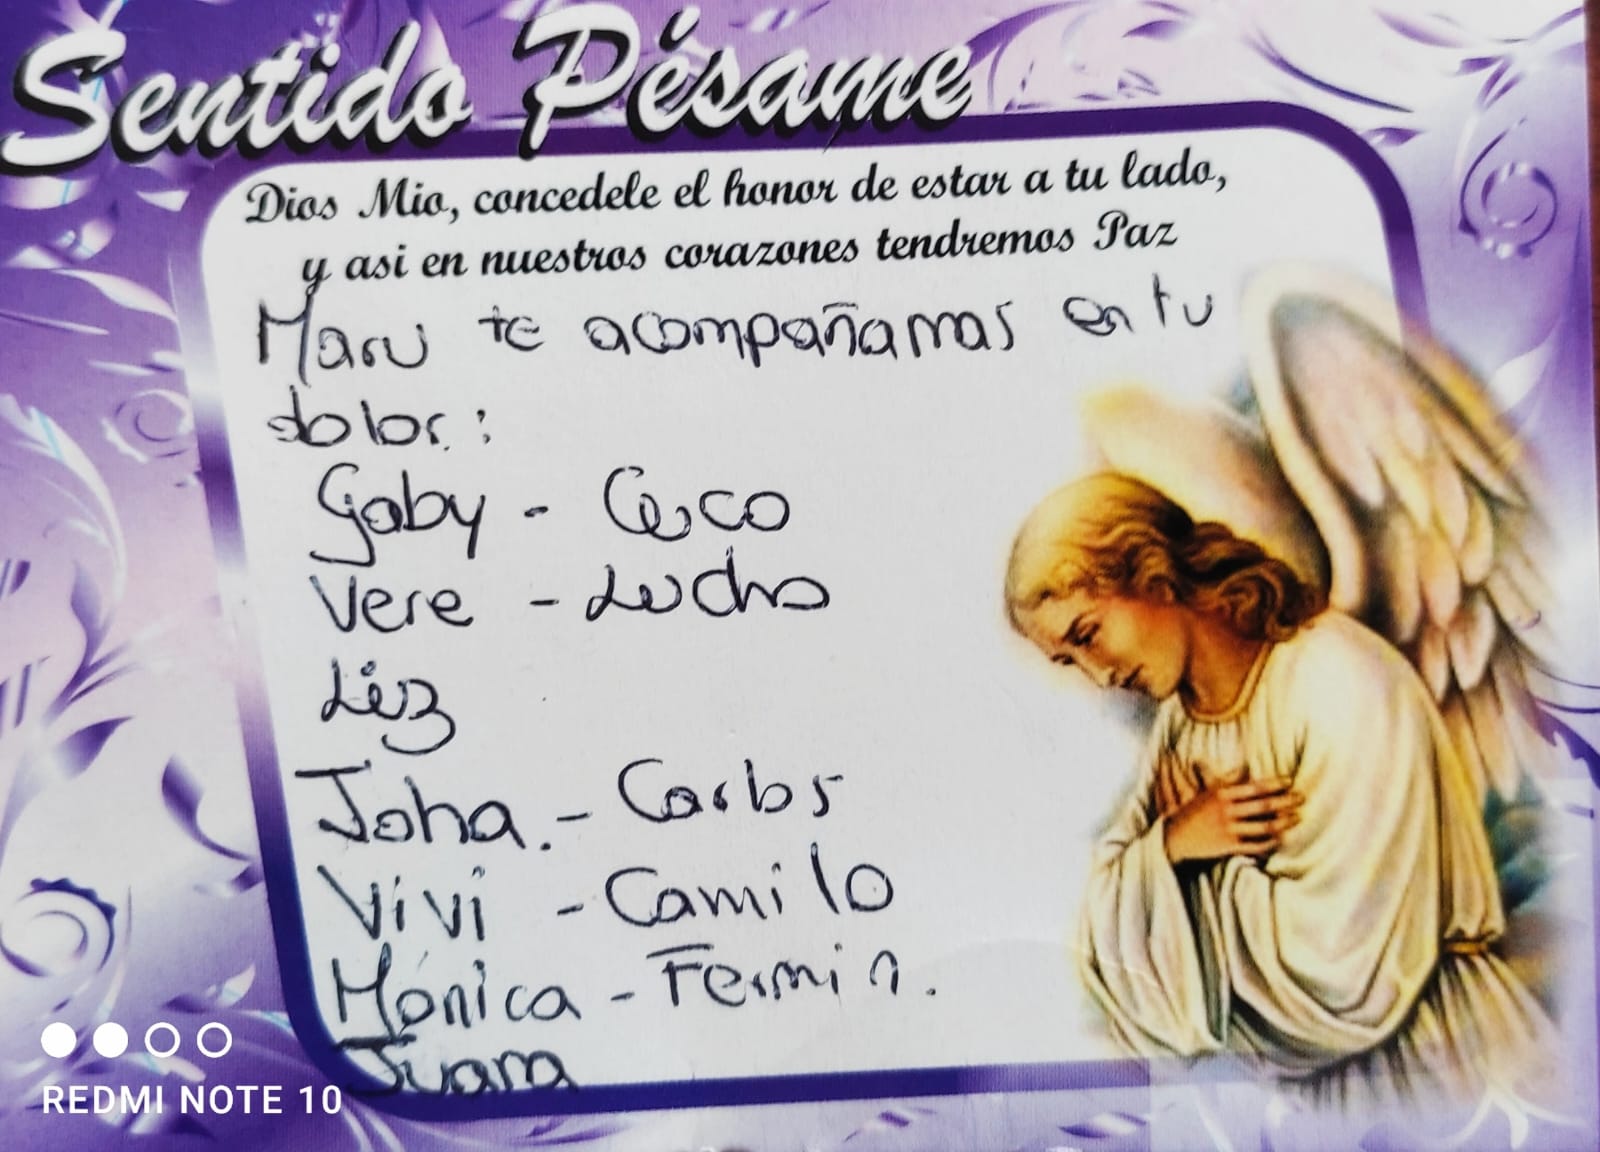 Sentido Pésame
Dios Mio, concedele el honor de estar a tu lado,
y asi en nuestros corazones tendremos Paz
Maru te acompañamos en tu
dolor:
Gaby - Cuco
Vere - Lucho
Liz
Joha. - Carlos
Vivi - Camilo
Mónica - Fermin.
Juana
REDMI NOTE 10